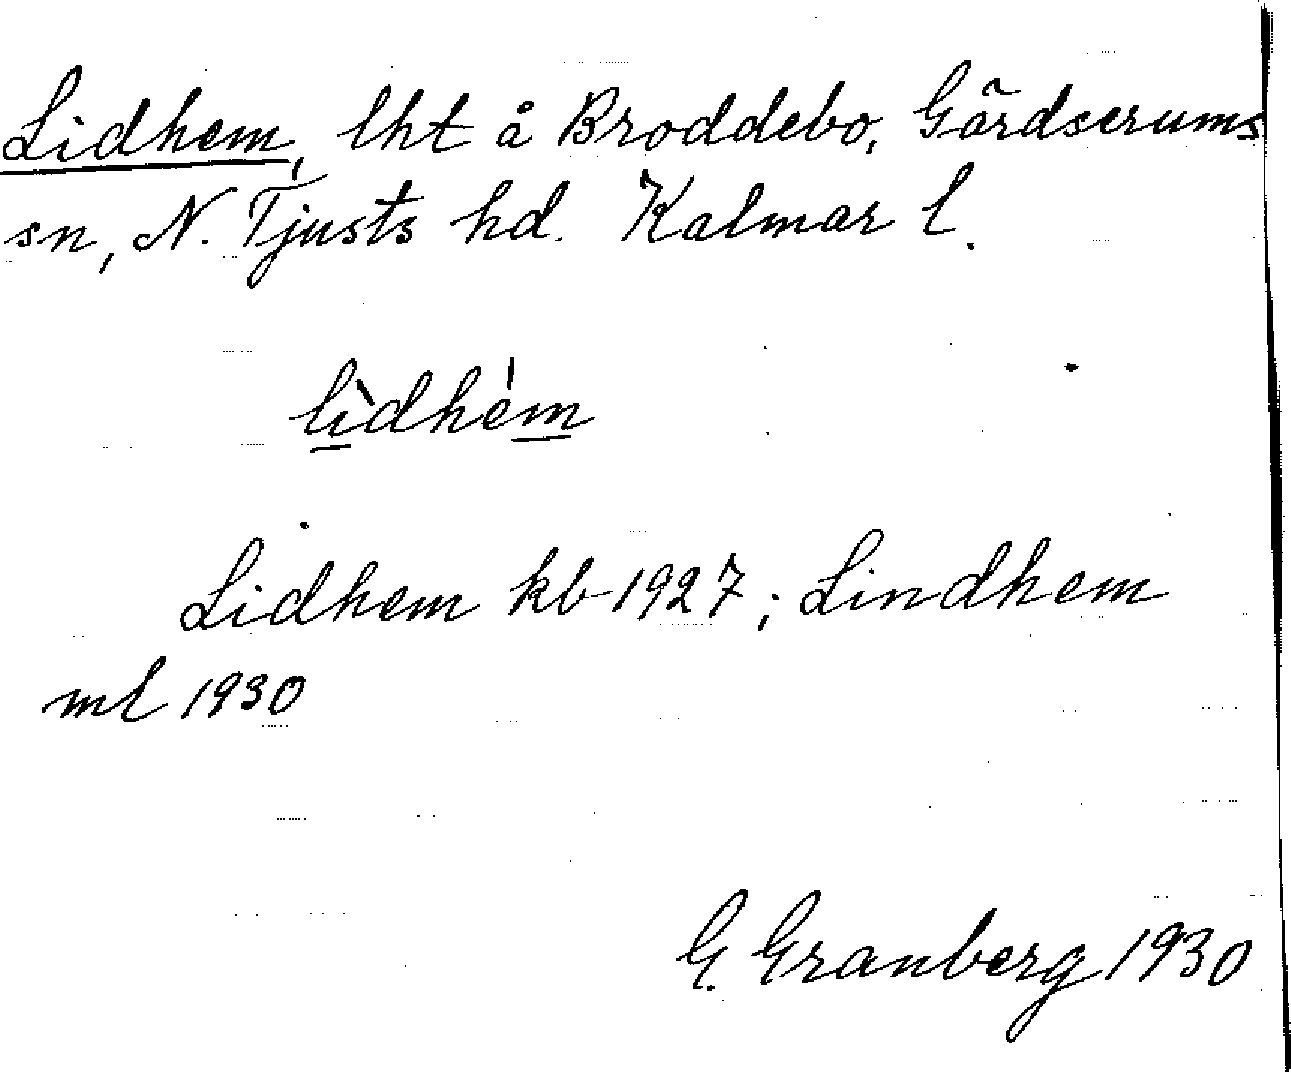 Lidhem, lht å Broddebo, Gärdserums
sn, N. Tjusts hd. Kalmar l.
lìdhém
Lidhem kb 1927; Lindhem
ml 1930
G. Granberg 1930